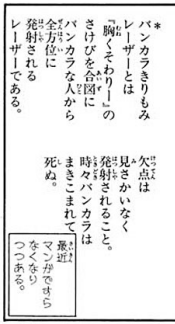 *バンカラきりもみ
レーザーとは
『胸くそわりー』の
さけびを合図に
バンカラな人から
全方位に
発射される
レーザーである。
欠点は
見さかいなく
発射されること。
時々バンカラは
まきこまれて
死ぬ。
最近
マンガですら
なくなり
つつある。